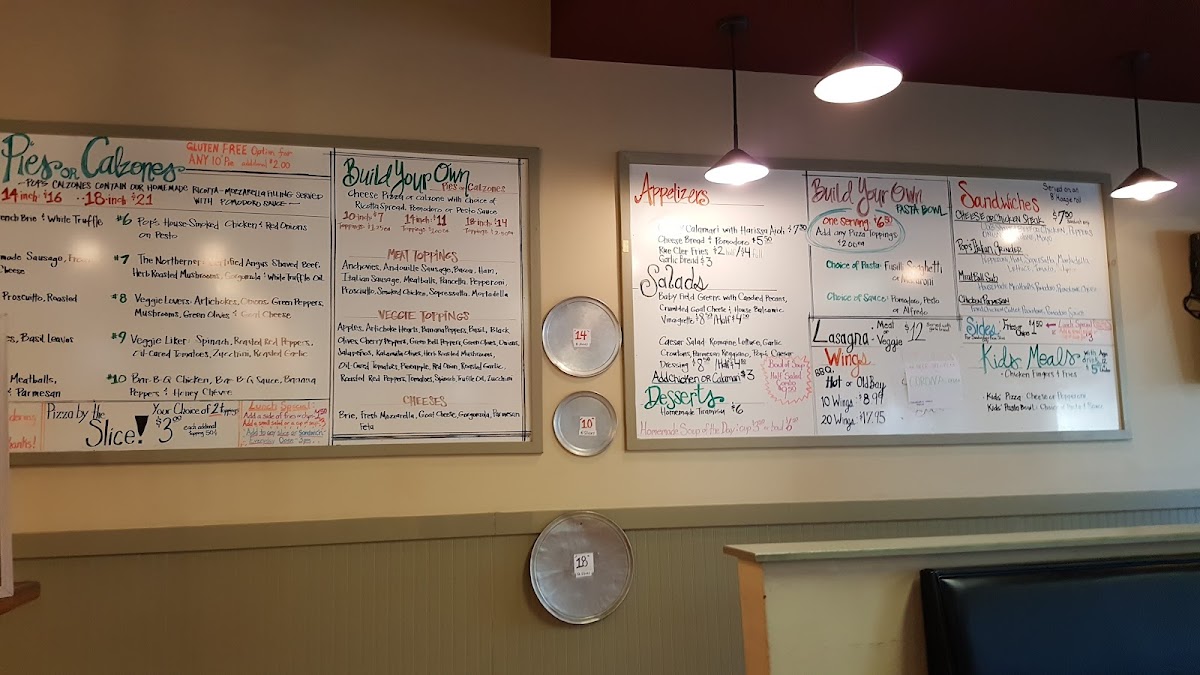 Pies OR Calzones
GLUTEN FREE Option for
ANY 10" Pie additional $2.00
POP'S CALZONES CONTAIN OUR HOMEMADE RICOTTA-MOZZARELLA FILLING SERVED
WITH POMODORO SAUCE
14-inch $16 18-inch $21
French Brie & White Truffle
#6 Pop's House-Smoked Chicken & Red Onions
on Pesto
Sausage,
Cheese
#7 The Northerner: Certified Angus Shaved Beef,
Herb Roasted Mushrooms, Gorgonzola & White Truffle Oil
Prosciutto, Roasted
#8 Veggie Lovers: Artichokes, Onions, Green Peppers,
Mushrooms, Green Olives & Goat Cheese
Basil Leaves
#9 Veggie Liker: Spinach, Roasted Red Peppers,
Oil-Cured Tomatoes, Zucchini, Roasted Garlic
Meatballs,
& Parmesan
#10 Bar-B-Q Chicken, Bar-B-Q Sauce, Banana
Peppers & Honey Chèvre
Pizza by the
Slice!
Your Choice of 2 Toppings
$3.00
each additional
topping 50¢
Lunch Special
Add a side of fries
Add a small salad or a cup
Add to any slice or sandwich
Build Your Own
Pies or Calzones
Cheese Pizza or calzone with Choice of
Ricotta Spread, Pomodoro or Pesto Sauce
10-inch $7
Toppings $1.25ea
14-inch $11
Toppings $2.00ea
18-inch $14
Toppings $2.50ea
MEAT TOPPINGS
Anchovies, Andouille Sausage, Bacon, Ham,
Italian Sausage, Meatballs, Pancetta, Pepperoni,
Prosciutto, Smoked Chicken, Sopressatta, Mortadella
VEGGIE TOPPINGS
Apples, Artichoke Hearts, Banana Peppers, Basil, Black
Olives, Cherry Peppers, Green Bell Peppers, Green Olives, Onions,
Jalapeños, Kalamata Olives, Herb Roasted Mushrooms,
Oil-Cured Tomatoes, Pineapple, Red Onion, Roasted Garlic,
Roasted Red Peppers, Tomatoes, Spinach, Truffle Oil, Zucchini
CHEESES
Brie, Fresh Mozzarella, Goat Cheese, Gorgonzola, Parmesan
Feta
14"
10"
18"
Appetizers
Calamari with Harissa Aioli $7.50
Cheese Bread & Pomodoro $5.50
Garlic bread $3
Salads
Baby Field Greens with Candied Pecans,
Crumbled Goat Cheese & House Balsamic
Vinaigrette $8.50 / Half $4.50
Caesar Salad: Romaine Lettuce, Garlic
Croutons, Parmesan Reggiano, Pop's Caesar
Dressing $8.50 / Half $4.50
Add Chicken OR Calamari $3
Bowl of Soup
Half Salad
Combo
Desserts
Homemade Tiramisu $6
Homemade Soup of the Day: cup or bowl
Build Your Own
PASTA BOWL
One Serving $6.50
Add any Pizza Toppings
$2.00ea
Choice of Pasta: Fusilli, Spaghetti
or
Choice of Sauce: Pomodoro, Pesto
or Alfredo
Lasagna
Meat
or
Veggie
$12
Wings
BBQ,
Hot or Old Bay
10 Wings $8.99
20 Wings $17.95
Sandwiches
Served on an
8" Hoagie Roll
CHEESE OR CHICKEN STEAK $7.50
Pop's Italian Grinder
Meatball Sub
Chicken Parmesan
Sides
Kids Meals
Chicken Fingers & Fries
Kids' Pizza: Cheese or Pepperoni
Kids' Pasta Bowl: